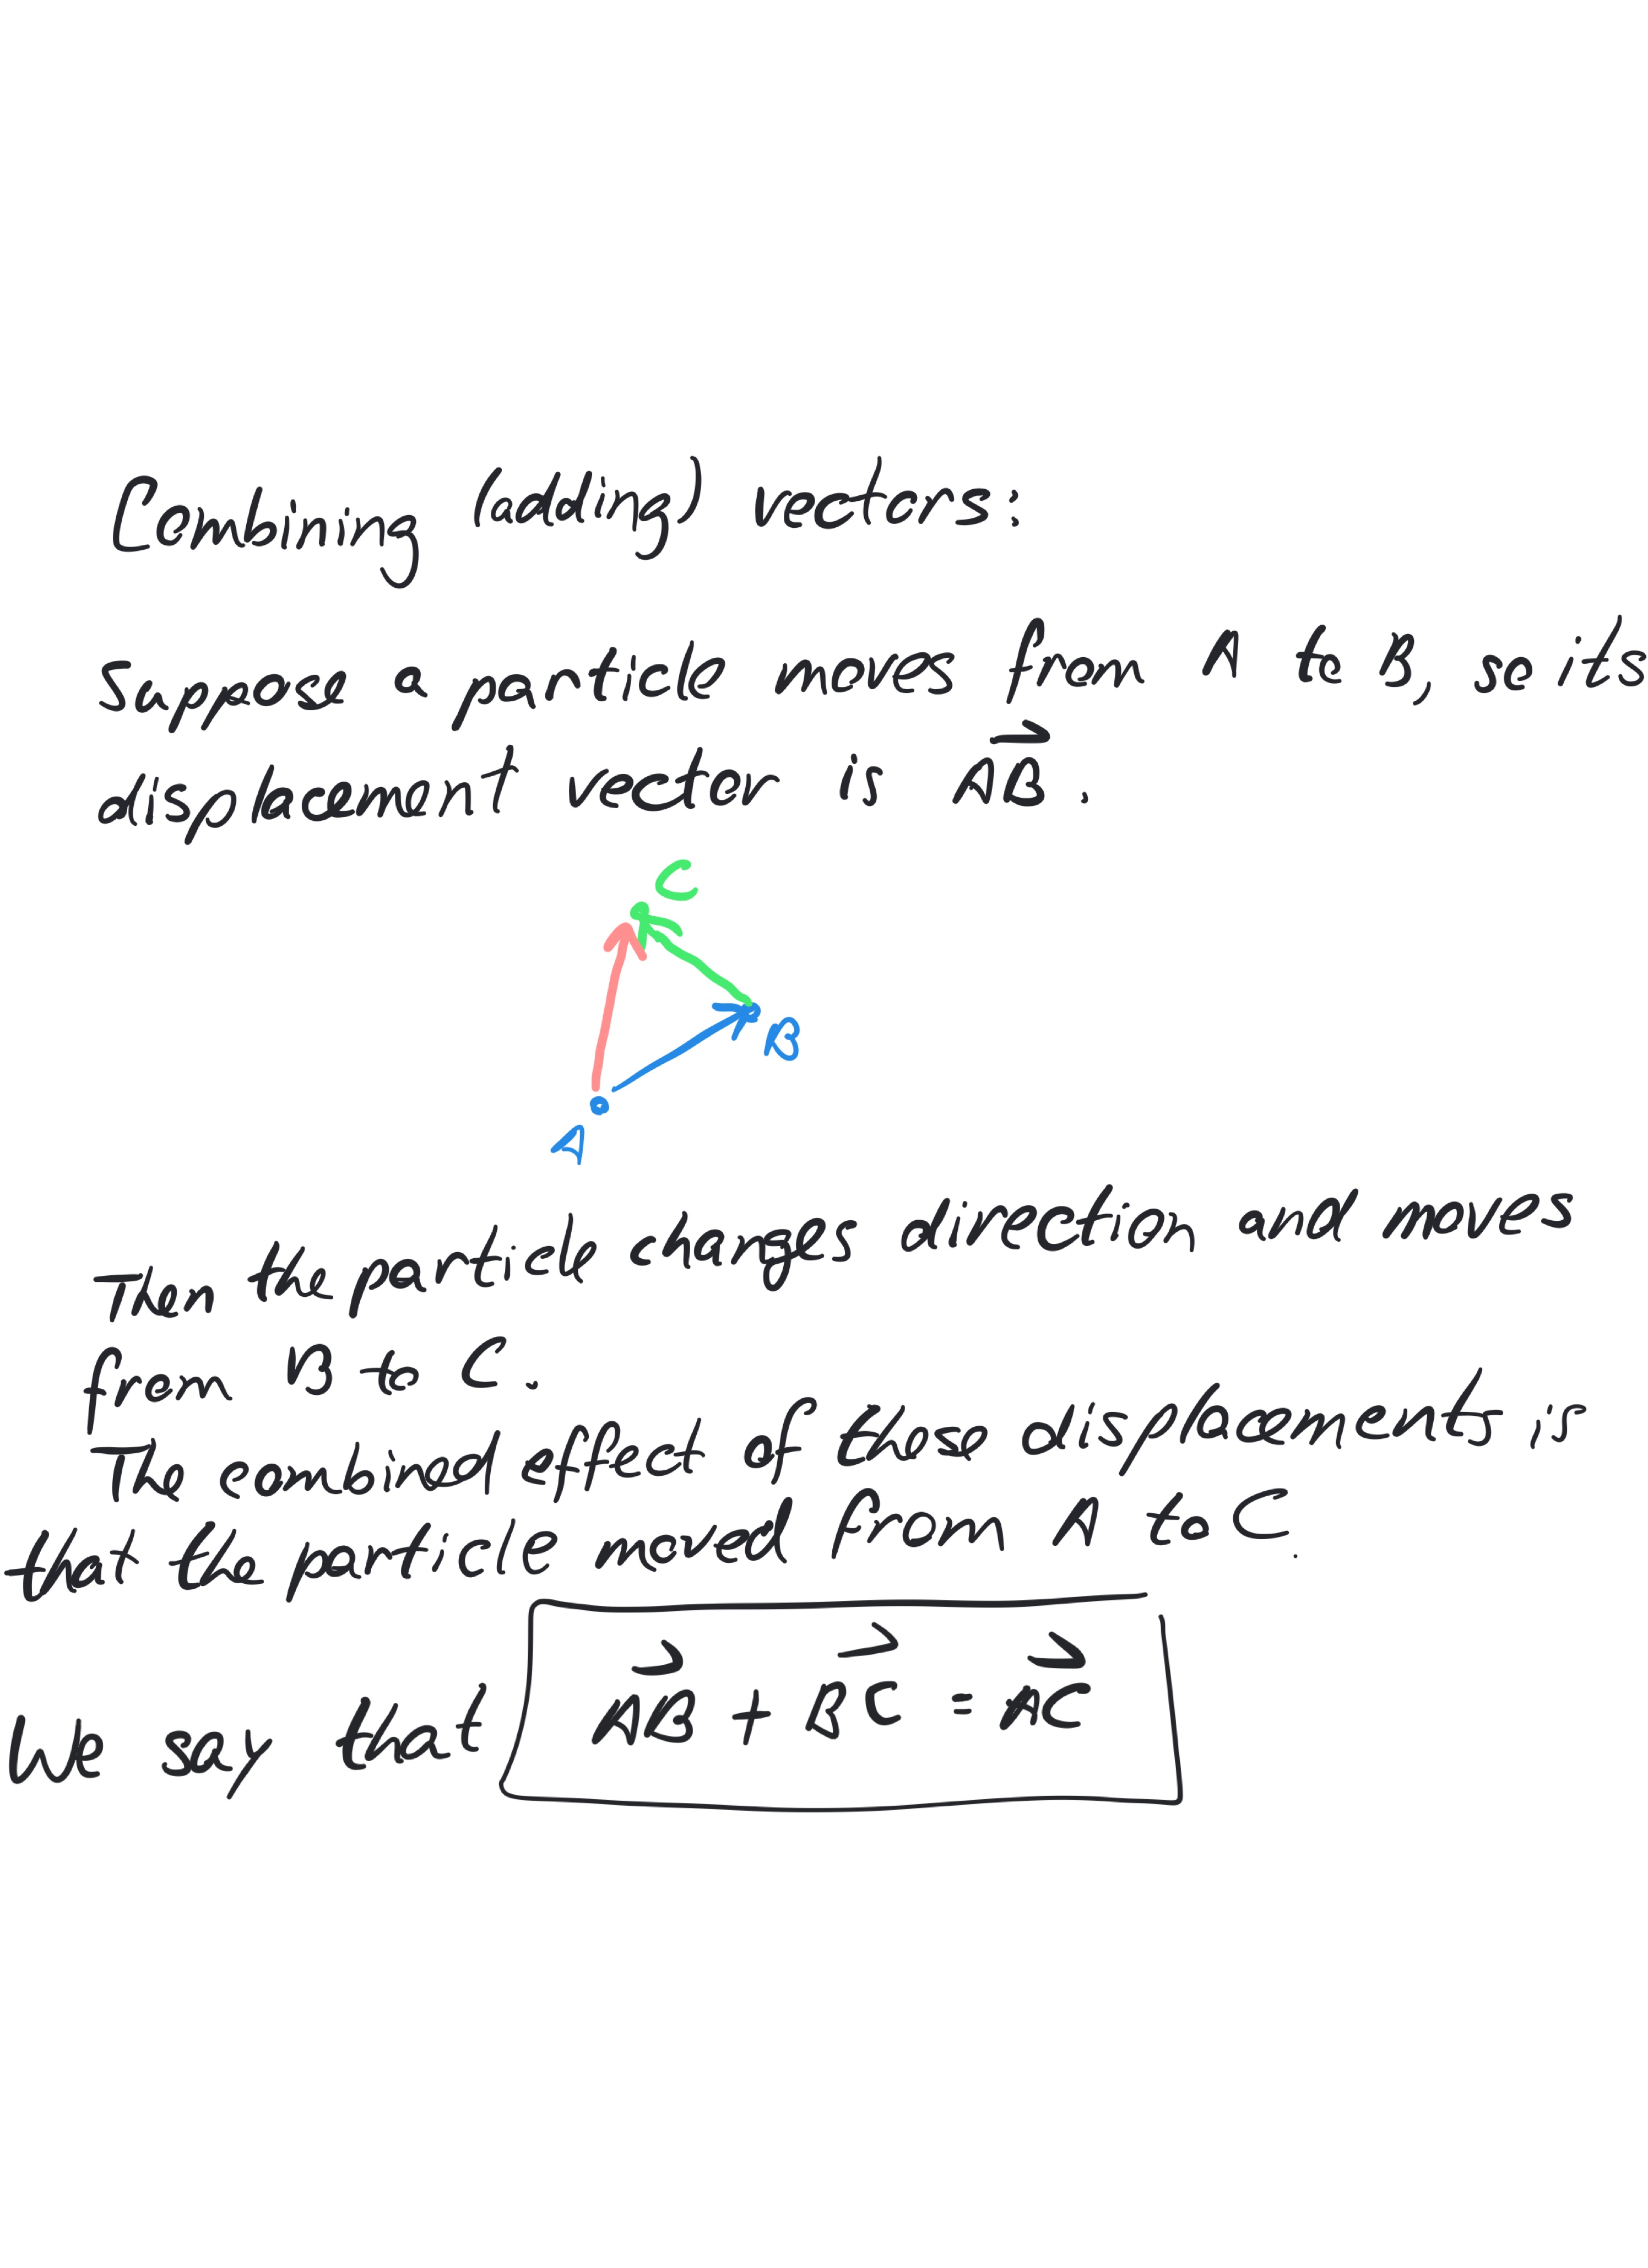 Combining (adding) vectors:
Suppose a particle moves from A to B, so its
displacement vector is AB⃗.
C
B
A
Then the particle changes direction and moves
from B to C.
The combined effect of those displacements is
that the particle moved from A to C.
We say that AB⃗ + BC⃗ = AC⃗